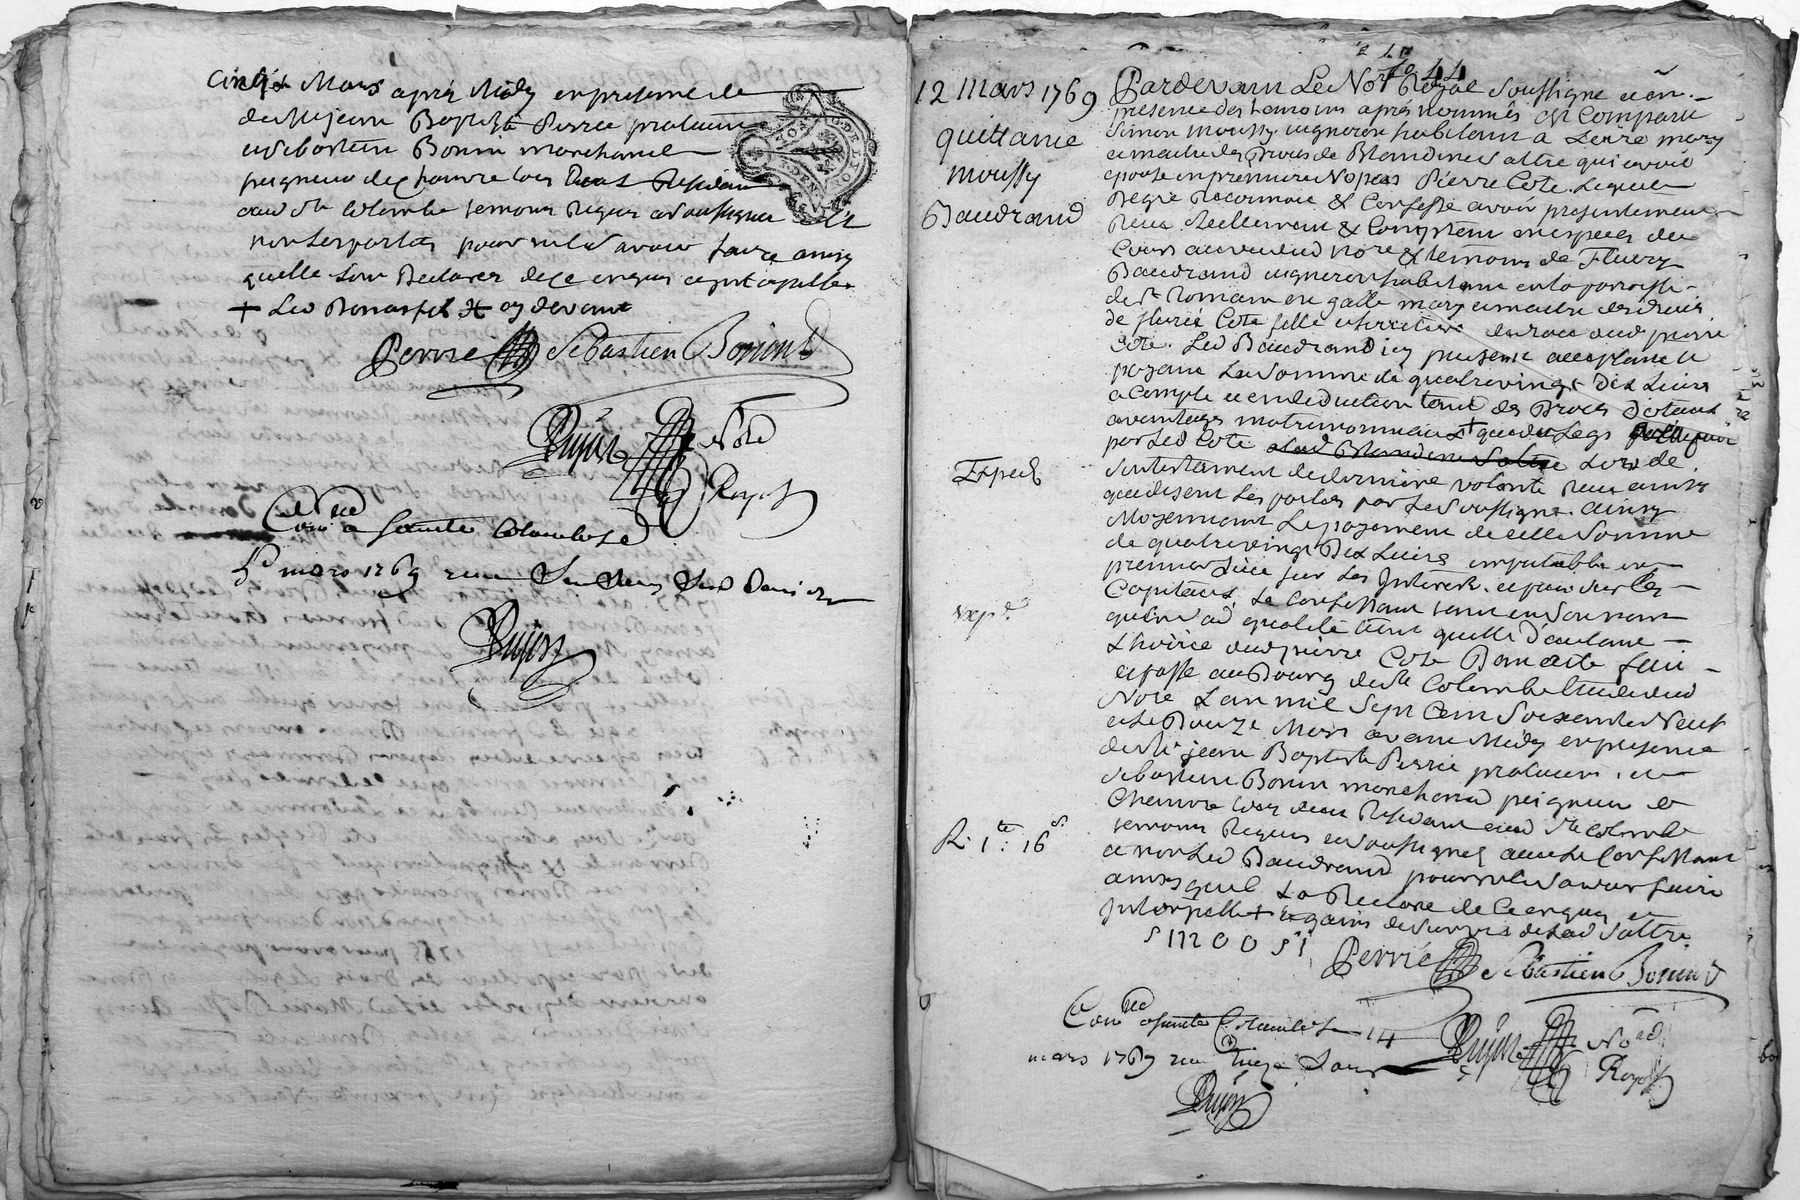 cinq Mars aprés Midy en presence de
de Me jean Baptiste Perrié praticien
et Sebastien Bonin marchand
peigneur de chanvre tous deux Residant
aud Ste Colombe temoins Requis et soussignés
non les parties pour ne le savoir faire ainsy
quelle lon Declarer de ce enquis et interpellés
+ Led
Perrié Sebastien Bonin
Dujast Nore
Royal
Conlé a Sainte Colombe le
5e mars 1769 reçu
Dujast
44
12 mars 1769
quittance
moussy
Baudrand
Exped
exp.
R. 1 te : 16 s
Pardevant Le Nore Royal Soussigné et en
presence des temoins aprés nommés est Comparu
Simon moussy vigneron habitant a Loire mary
et maitre des Droits de Blandine Sattre qui avoit
epousé en premiere Nopces Pierre Cote. Lequel
De gré Reconnoit & Confesse avoir presentement
Reçu Reellement & Comptant en especes du
Cours au vu dud Nore & temoins de Fleury
Baudrand vigneron habitant en la paroisse
de St Romain en galle mary et maitre des droits
de fleurie Cote fille et heritiere de feu aud pierre
Cote. Led Baudrand icy present acceptant et
payant La Somme de quatrevingt Dix Livres
a Compte et en deduction tant des Droits Dotaux
avantages matrimoniaux + que du Legs
par Led Cote a lad Blandine Sattre Lors de
Son testament de derniere volonté Reçu ainsy
que disent Les parties par Le Soussigné. ainsy
Moyennant Le payement de lad Somme
de quatrevingt Dix Livres imputable en
premier Lieu sur Les Interets et puis sur Les
Capitaux Le Confessant tant en Son nom
qu'en sad qualité tient quitte d'autant
L'hoirie dud pierre Cote Dont acte fait
et passé au Bourg de Ste Colombe Etude dud
Nore L'an mil Sept Cent Soixante Neuf
et Le Douze Mars avant Midy en presence
de Me jean Baptiste Perrié praticien et
Sebastien Bonin marchand peigneur de
Chanvre tous deux Residant aud Ste Colombe
temoins Requis et Soussignés avec Le Confessant
et non Led Baudrand pour ne le Savoir faire
ainsy quil La Declaré de Ce enquis et
Interpellé + et gains de Survies de Lad Sattre
Perrié Sebastien Bonin
Conlé a Sainte Colombe Le 14
mars 1769 reçu treize Sous
Dujast Nore
Royal
Dujast